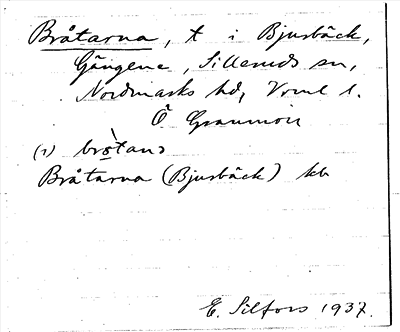 Bråtarna, t i Bjurbäck,
Gängene, Silleruds sn,
Nordmarks hd, Vrml l.
Ö
(1) bròtanɔ
Bråtarna (Bjurbäck) kb
E. Silfors 1937.